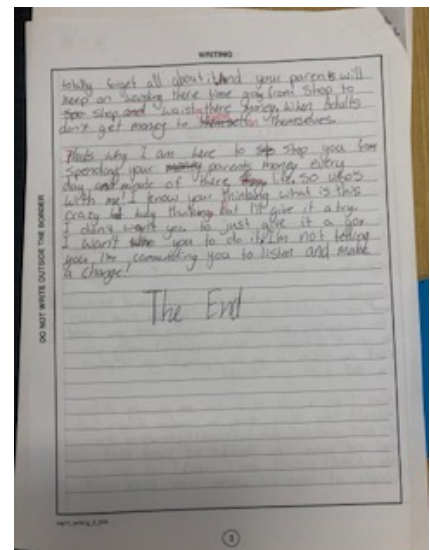 WRITING
totally forget all about it. And your parents will
keep on wasting there time going from shop to
shop and waist there money. When adults
don't get money to themselves.
Thats why I am here to stop you from
spending your parents money every
day and minute of there life. So who's
with me! I know your thinking what is this
crazy lady thinking but I'll give it a try.
I don't want you to just give it a go
I want you to do it. I'm not telling
you, I'm commanding you to listen and make
a change!
The End
DO NOT WRITE OUTSIDE THE BORDER
3